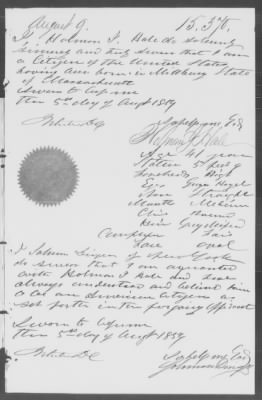 August 9. 15.376.
I Holman J. Hale do solemnly
sincerely and truly swear that I am
a Citizen of the United States
having been born in Millbury State
of Massachusetts
Sworn to before me
this 5th day of Augt 1859
Holman J. Hale
Age 41 years
Stature 5 feet
Forehead High
Eyes Grey Hazel
Nose Straight
Mouth Medium
Chin Round
Hair Grey
Complexion Fair
Face oval
I Salmon Singer of New York
do swear that I am acquainted
with Holman J. Hale and have
always understood and believe him
to be an American Citizen as
set forth in the foregoing affidavit
Sworn to before me
this 5th day of Augt 1859